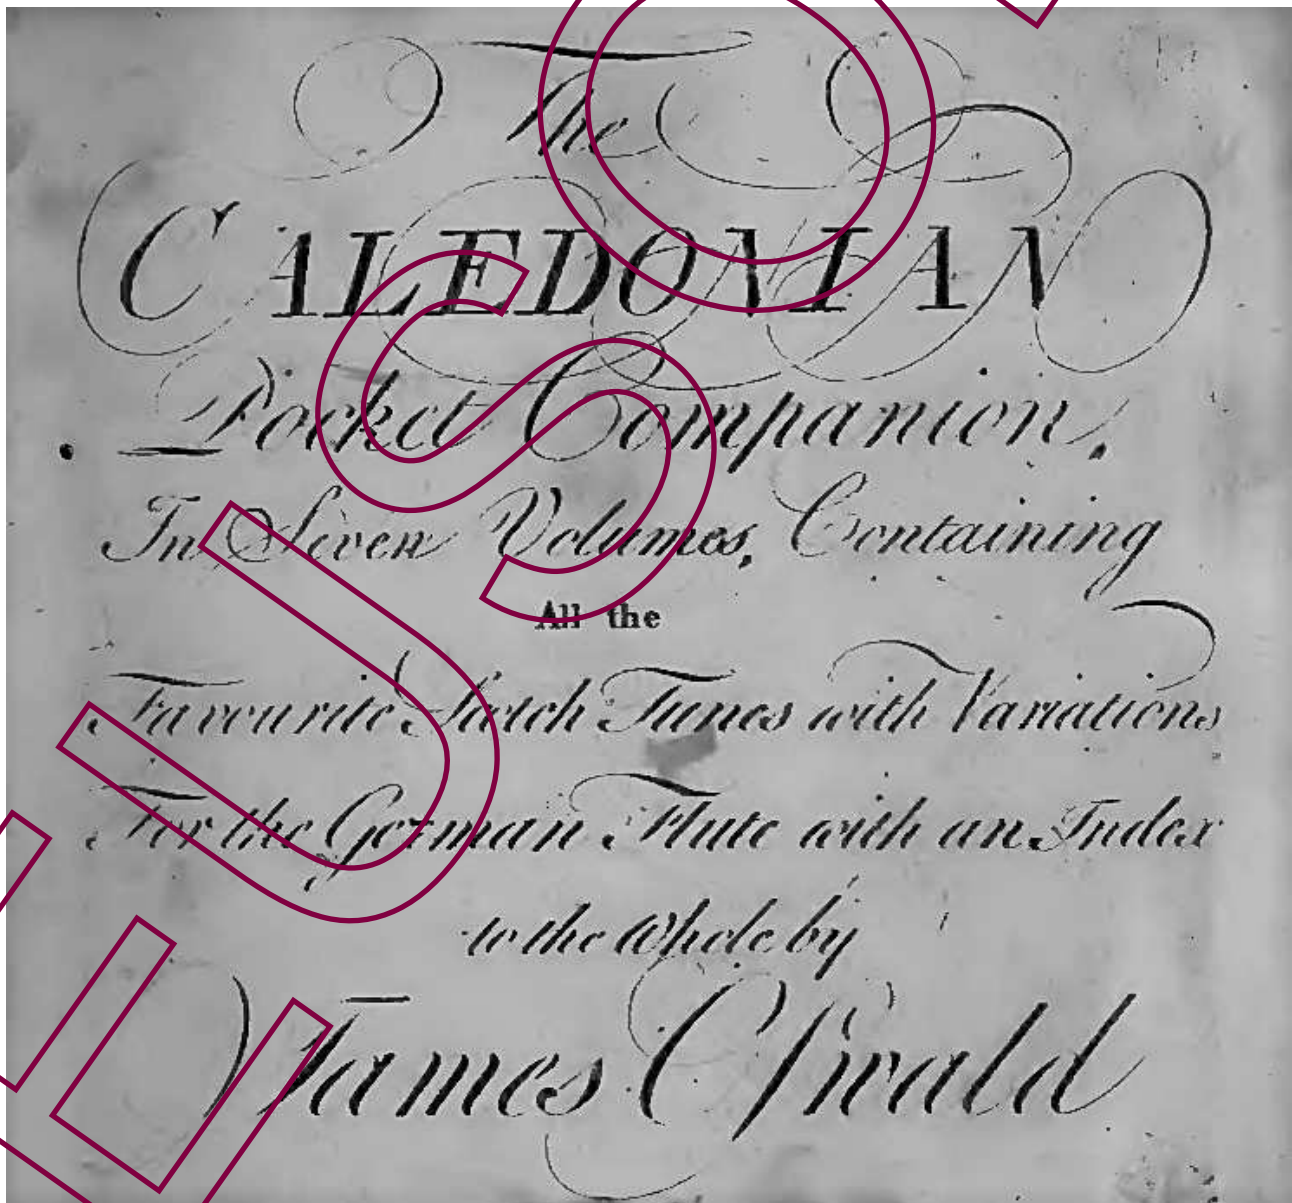 The
CALEDONIAN
Pocket Companion,
In Seven Volumes, Containing
All the
Favourite Scotch Tunes with Variations
For the German Flute with an Index
to the Whole by
James Oſwald